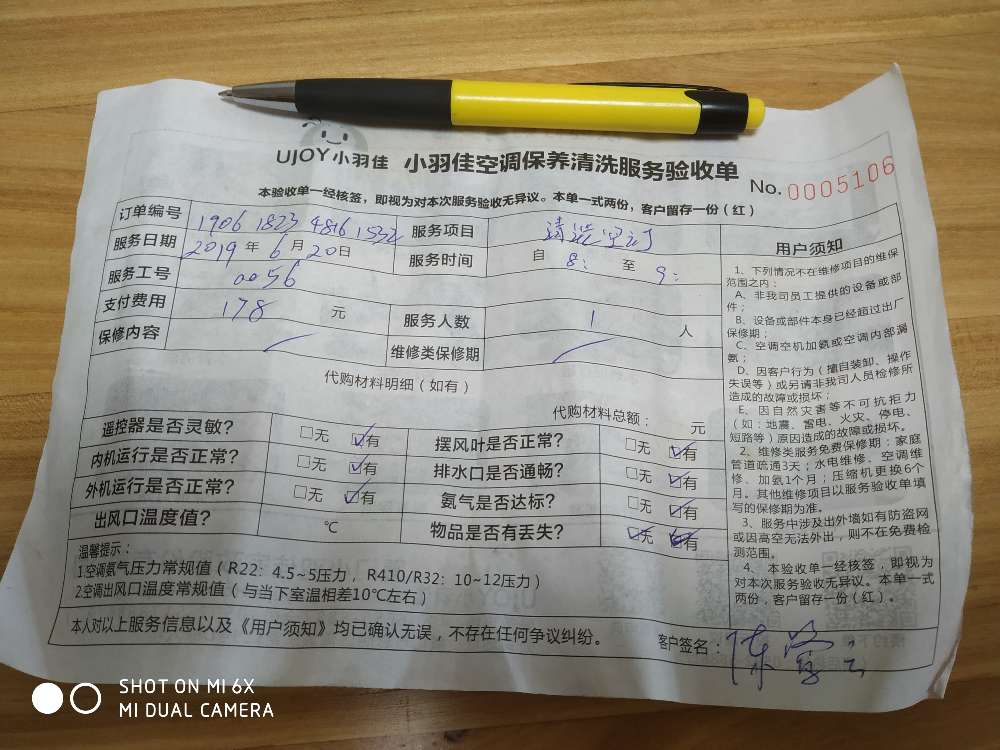 UJOY小羽佳 小羽佳空调保养清洗服务验收单 No. 0005106
本验收单一经核签，即视为对本次服务验收无异议。本单一式两份，客户留存一份（红）
订单编号 1906 1823 4816 1532 服务项目 清洗空调
服务日期 2019 年 6 月 20 日 服务时间 自 8: 至 9:
服务工号 0056
支付费用 178 元 服务人数 1 人
保修内容 / 维修类保修期 /
代购材料明细（如有）
代购材料总额： 元
遥控器是否灵敏？ □无 ☑有 摆风叶是否正常？ □无 ☑有
内机运行是否正常？ □无 ☑有 排水口是否通畅？ □无 ☑有
外机运行是否正常？ □无 ☑有 氨气是否达标？ □无 ☑有
出风口温度值？ ℃ 物品是否有丢失？ ☑无 有
温馨提示：
1.空调氨气压力常规值（R22：4.5~5压力，R410/R32：10~12压力）
2.空调出风口温度常规值（与当下室温相差10℃左右）
本人对以上服务信息以及《用户须知》均已确认无误，不存在任何争议纠纷。 客户签名： 陈
用户须知
1、下列情况不在维修项目的维保
范围之内：
A、非我司员工提供的设备或部
件；
B、设备或部件本身已经超过出厂
保修期；
C、空调空机加氨或空调内部漏
氨；
D、因客户行为（擅自装卸、操作
失误等）或另请非我司人员检修所
造成的故障或损坏；
E、因自然灾害等不可抗拒力
（如：地震、雷电、火灾、停电、
短路等）原因造成的故障或损坏。
2、维修类服务免费保修期：家庭
管道疏通3天；水电维修、空调维
修、加氨1个月；压缩机更换6个
月。其他维修项目以服务验收单填
写的保修期为准。
3、服务中涉及出外墙如有防盗网
或因高空无法外出，则不在免费检
测范围。
4、本验收单一经核签，即视为
对本次服务验收无异议。本单一式
两份，客户留存一份（红）。
SHOT ON MI 6X
MI DUAL CAMERA